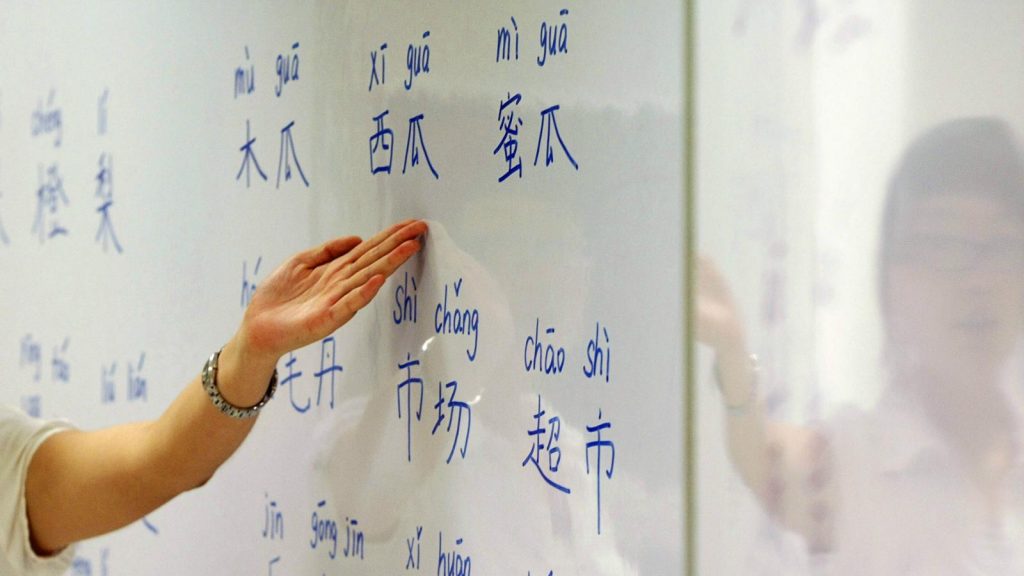 mù guā xī guā mì guā
木瓜 西瓜 蜜瓜
chéng lí
橙 梨
shì chǎng
市场
chāo shì
超市
毛丹
liú lián
jīn gōng jīn
xǐ huān